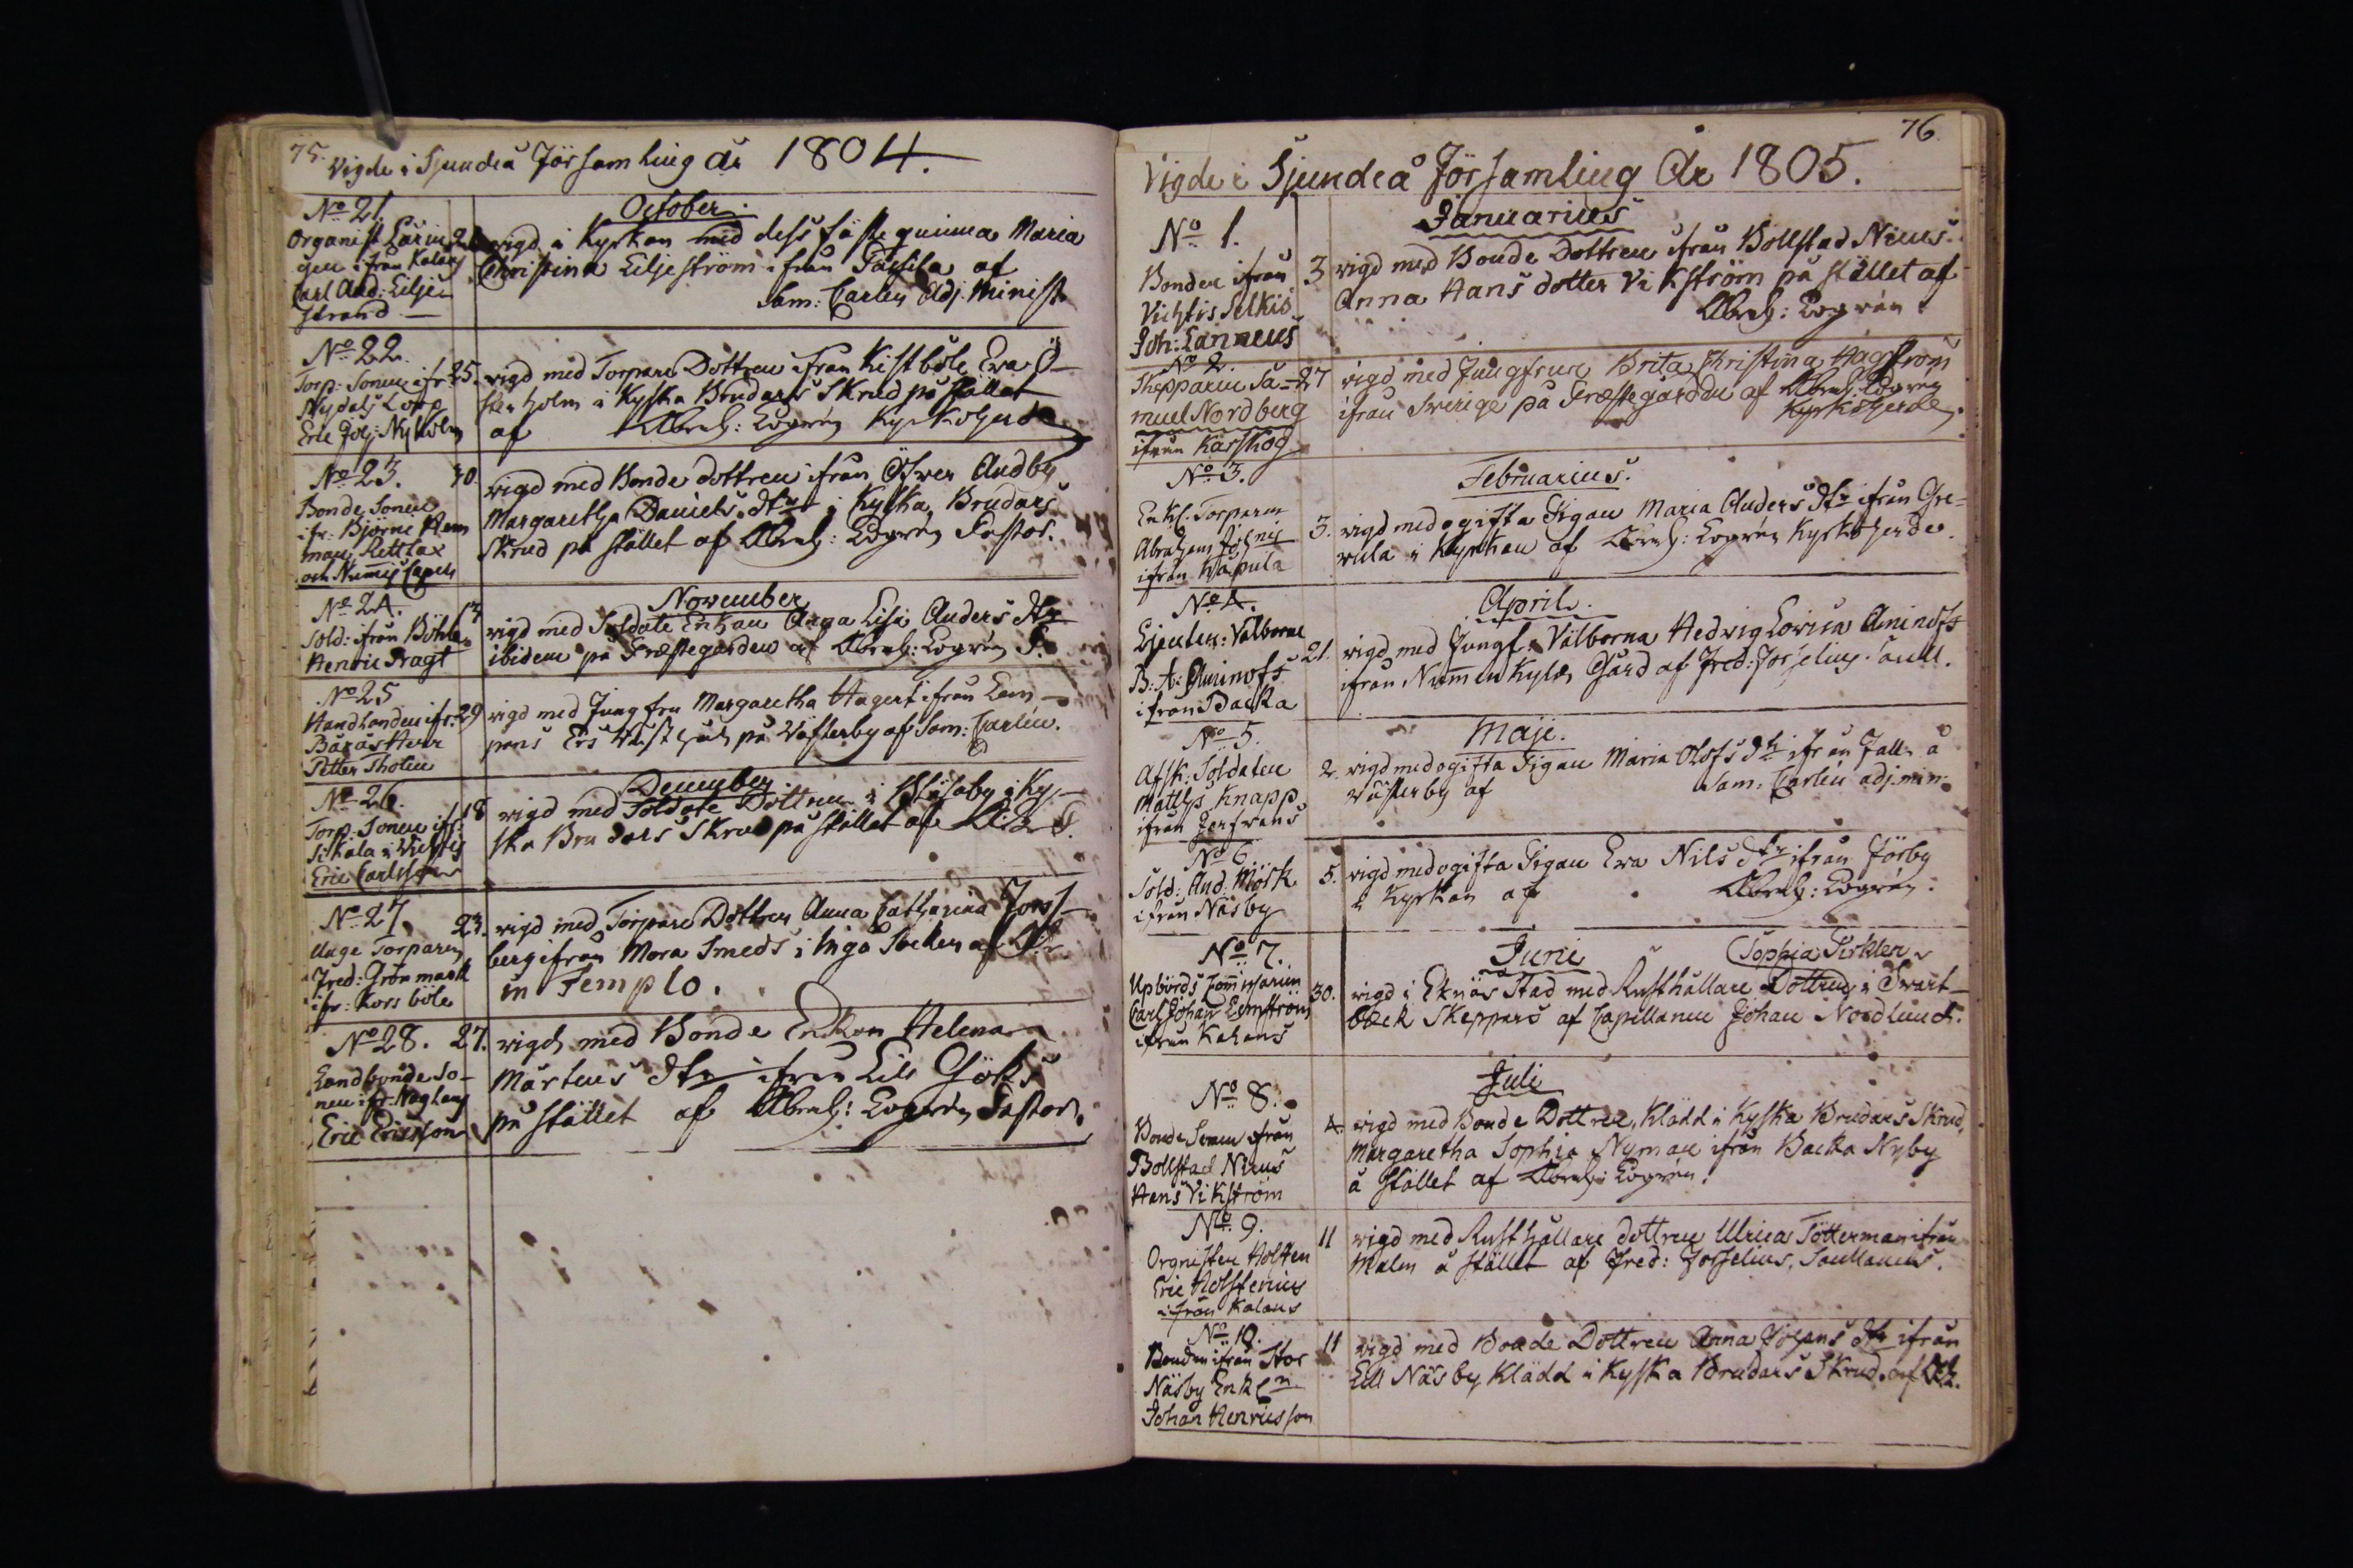 75.
Vigde i Sjundeå Församling år 1804.
No 21.
Organist Lärin
gen ifrån Kalans
Carl And: Lilje
strand
October.
vigd i Kyrkan med dess fästeqvinna Maria
Christina Liljeström ifrån Passila af
Sam: Carlen Adj. Minist.
No 22.
Torp: Sonen ifr. 25.
Nydals Torp
Eric Joh: Nyholm
vigd med Torpare Dottren ifrån Kistböle Eva Ö-
sterholm i Kyska Brudars Skrud på stället
af Abrah: Logrén Kyrkoherde
No 23. 30.
Bonde Sonen
ifr. Björne Hem
man
och
vigd med Bonde dottren ifrån Öfver Andby
Margaretha Daniels dtr i Kyska Brudars
Skrud på stället af Abrah: Logrén Pastor.
No 24. 13
Sold: ifrån Böhle
Henric Pragt
November
vigd med Soldate Enkan Anna Lisa Anders dtr
ibidem på Præstegården af Abrah: Logrén P.
No 25
Handlanden ifr. 29
Petter Tholin
vigd med Jungfru Margaretha Hagert ifrån Lem-
pans på Wästerby af Sam: Carlén.
No 26. 18
Torp: Sonen ifr.
Sikala i Vichtis
Eric Carlsson
December
vigd med Soldate Dottren i Myraby i Ky-
ska Brudars Skrud på stället af
No 27. 23.
Unge Torparen
Fred: Grönmark
ifr: Korsböle
vigd med Torpare Dottren Anna Catharina Forss-
berg ifrån Mora Smeds i Ingå Socken af
in Templo.
No 28. 27.
Landbonde So-
nen ifr. Nağlans
Eric Ericsson
vigd med Bonde Enkan Helena
Mårtens dtr ifrån Lill Göks
på stället af Abrah: Logrén Pastor.
76.
Vigde i Sjundeå Församling År 1805.
No 1.
Bonden ifrån 3
Vichtis Selkis
Joh: Lanneus
Januarius
vigd med Bonde Dottren ifrån Bollstad Nirus
Anna Hans dotter Vikström på stället af
Abrah: Logrén
No 2
Skepparen Sa- 27
muel Nordberg
ifrån Kärskog
vigd med Jungfrun Brita Christina Hagström
ifrån Sverige på Præstegården af Abrah: Logrén
Kyrkoherde.
No 3.
Enkl. Torparen
Abraham
ifrån Kåpula
Februarius.
3. vigd med ogifta Pigan Maria Anders dtr ifrån Gre-
vula i Kyrkan af Abrah: Logrén Kyrkoherde.
No 4.
Ljeuten: Välborne
B: A: Aminoff 21.
ifrån Backa
April.
vigd med Jungf. Välborna Hedvig Lovisa Aminoff
ifrån Nummenkylä Gård af Fred: Forselius Sacell.
No 5.
Afsk: Soldaten
Matths Knapp
ifrån Jerfvans
Maji.
2. vigd med ogifta Pigan Maria Olofs dtr ifrån Fall å
Wästerby af Sam: Carlén adj. min:
No 6
Sold: And: Mörk
ifrån Näsby
5. vigd med ogifta Pigan Eva Nils dtr ifrån Förby
i Kyrkan af Abrah: Logrén.
No 7.
Upbörds Commissarien
Carl Johan Lemström
ifrån Kalans
Junii
Sophia Sirklen
30. vigd i Eknäs Stad med Rusthållare Dottren i Svart-
bäck Skeppars af Capellanen Johan Nordlund.
No 8.
Bonde Sonen ifrån
Bollstad Nirus
Hans Vikström
Juli
4. vigd med Bonde Dottren, Klädd i Kyska Brudars Skrud,
Margaretha Sophia Nyman ifrån Backa Nyby
å stället af Abrah: Logrén.
No 9.
Orgnisten Holsten
Eric Holstenius
ifrån Kalans
11 vigd med Rusthållare dottren Ulrica Töttermanifrån
Malm å stället af Fred: Forselius. Sacellanus.
No 10.
Bonden ifrån Stor
Näsby Enkln
Johan Henricsson
11 vigd med Bonde Dottren Anna Johans dtr ifrån
Lill Näsby Klädd i Kyska Brudars Skrud. af